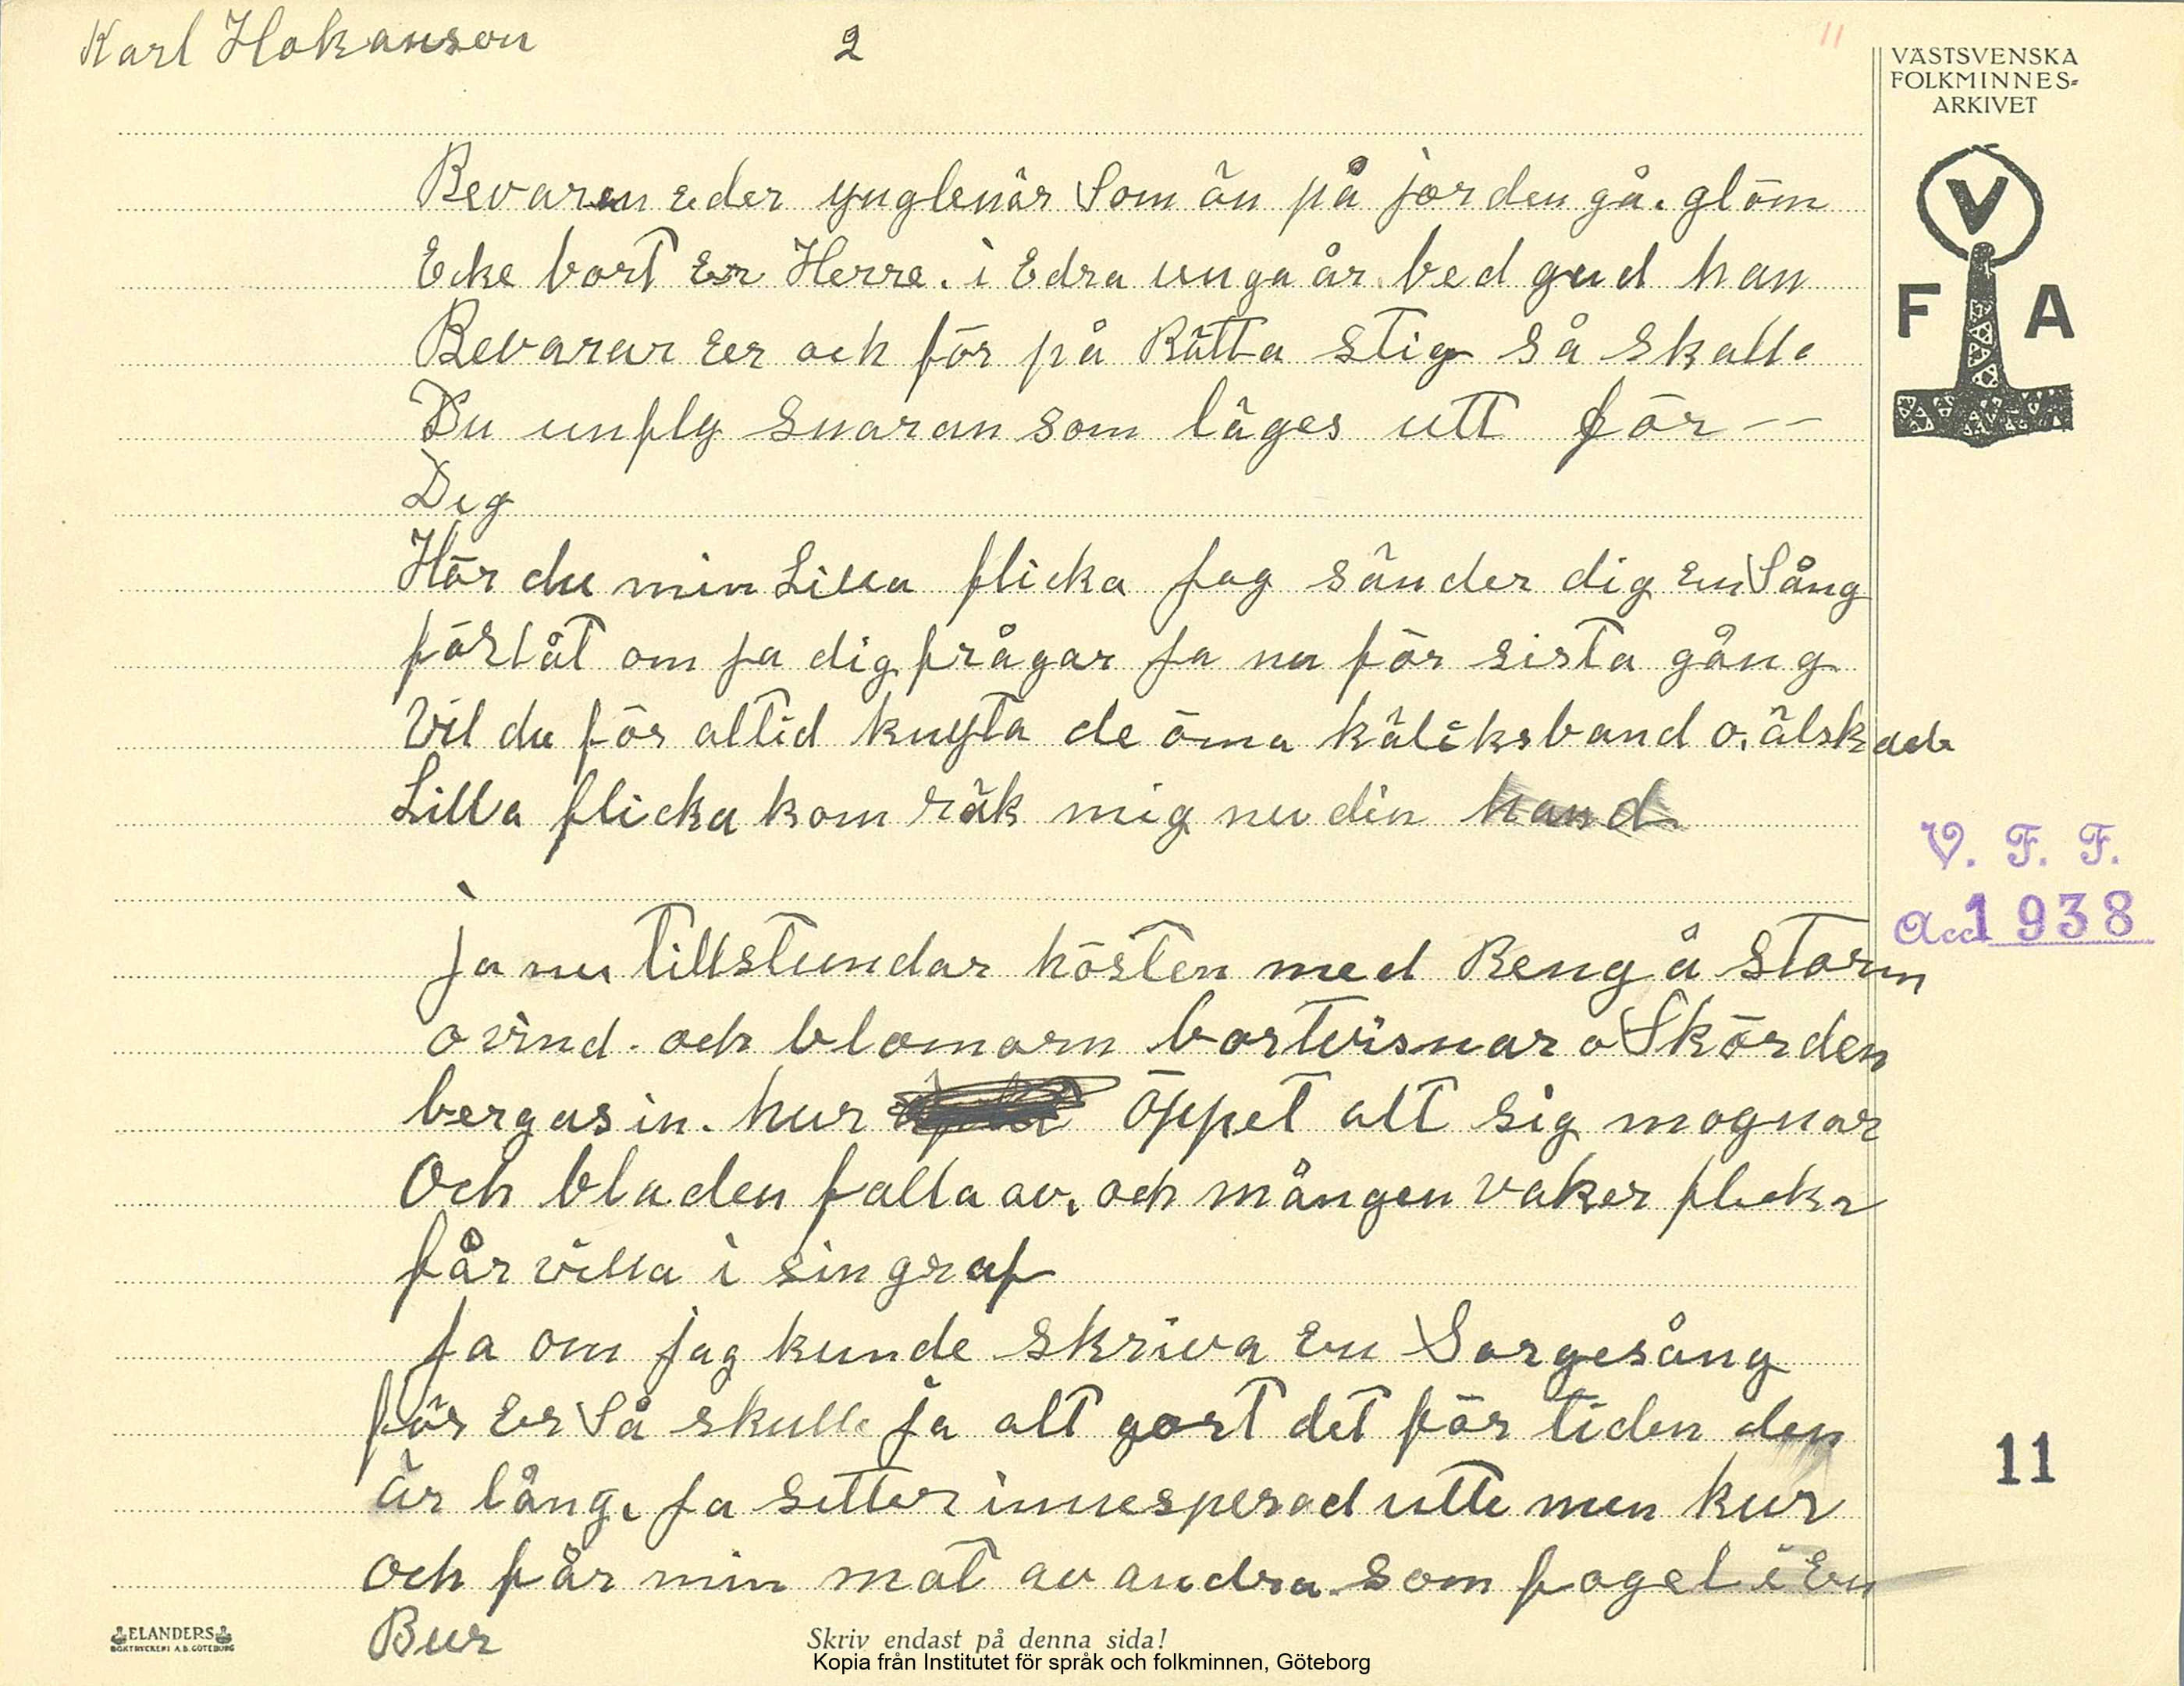 Karl Hokanson 2 11
VÄSTSVENSKA
FOLKMINNES-
ARKIVET
V
F A
Bevaren Eder ynglenär Som än på jorden gå. glöm
Ecke bort Er Herre. i Edra unga år. bed gud han
Bevarar Eer och för på Rätta stig så skall.
Du unfly snaran som läges utt för --
Dig
Hör du min Lilla flicka Jag sänder dig En Sång
förlåt om ja dig frågar Ja nu för sista gång
Vil du för altid knyta de öma käliksband o. älskade
Lilla flicka kom räk mig nu din hand
V. F. F.
Acc 1938
Ja nu tillstundar hösten med Reng å storm
o vind. och blomorn bortvisnar o Skörden
bergas in. hur öppet alt sig mognar
Och bladen falla av. och mången vaker flicka
får villa i sin graf
Ja om jag kunde skriva En Sorgesång
för Er Så skulle ja alt gort det för tiden den
är lång. Ja setter innesperad utte men kur
och får min mat av andra som fogel i En
Bur
11
ELANDERS
BOKTRYCKERI A.B. GÖTEBORG
Skriv endast på denna sida!
Kopia från Institutet för språk och folkminnen, Göteborg